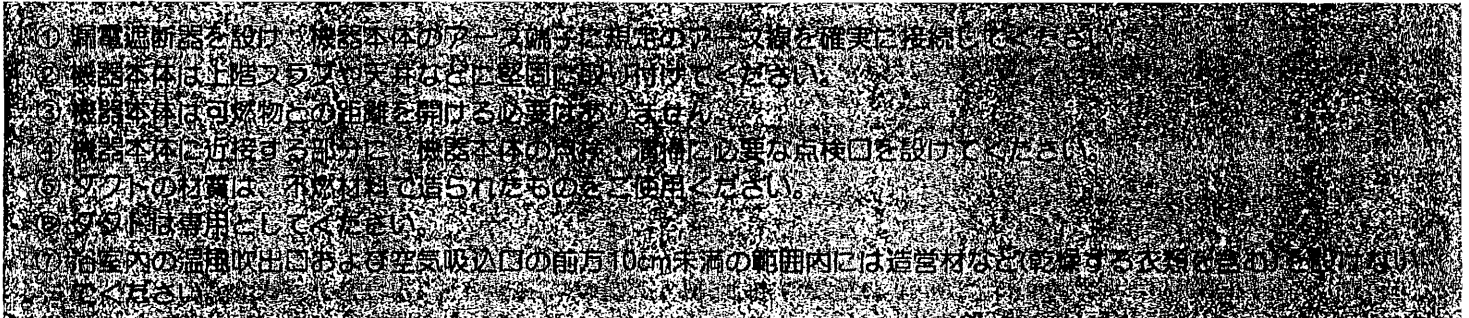 ① 漏電遮断器を設け、機器本体のアース端子に規定のアース線を確実に接続してください。
② 機器本体は上階スラブや天井などに堅固に取り付けてください。
③ 機器本体は可燃物との距離を開ける必要はありません。
④ 機器本体に近接する部分に、機器本体の点検・清掃に必要な点検口を設けてください。
⑤ ダクトの材質は、不燃材料で造られたものをご使用ください。
⑥ ダクトは専用としてください。
⑦ 浴室内の温風吹出口および空気吸込口の前方10cm未満の範囲内には造営材など(乾燥する衣類を含む)を設けない
でください。